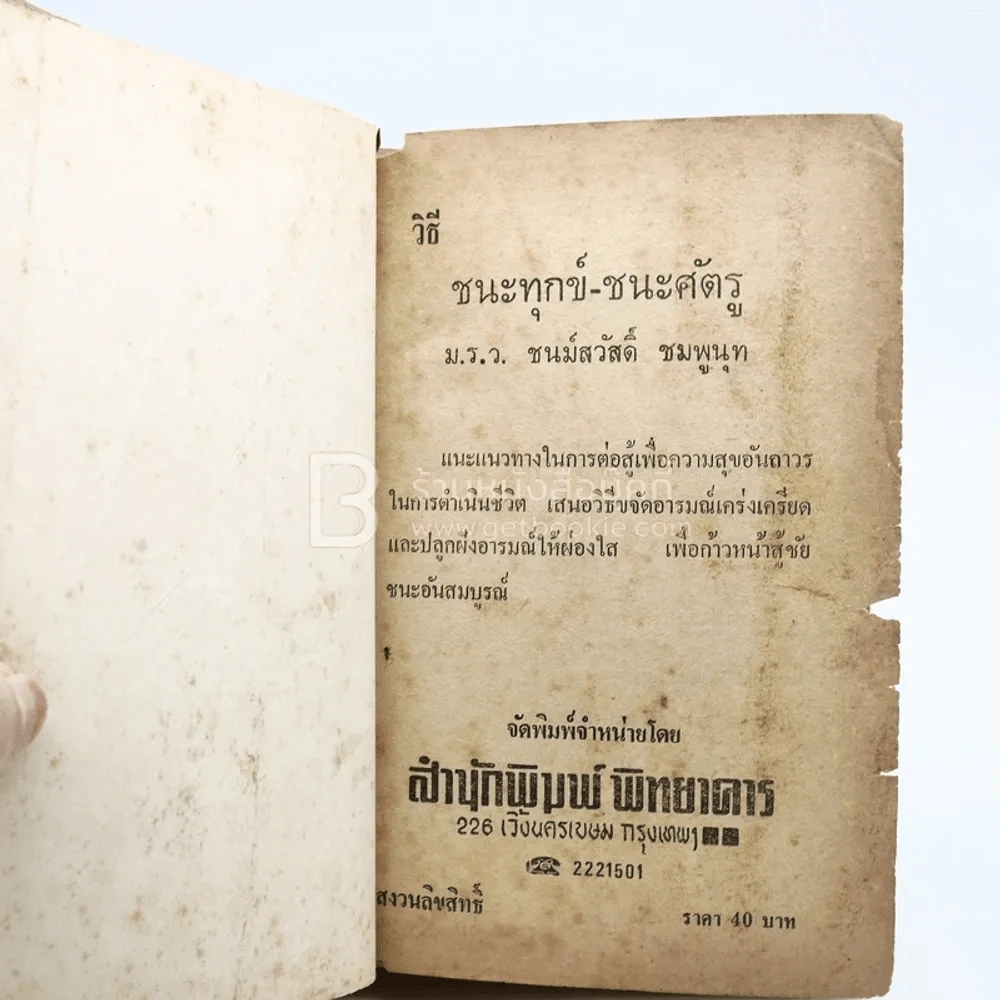 วิธี
ชนะทุกข์-ชนะศัตรู
ม.ร.ว. ชนม์สวัสดิ์ ชมพูนุท
แนะแนวทางในการต่อสู้เพื่อความสุขอันถาวร
ในการดำเนินชีวิต เสนอวิธีขจัดอารมณ์เคร่งเครียด
และปลูกฝังอารมณ์ให้ผ่องใส เพื่อก้าวหน้าสู้ชัย
ชนะอันสมบูรณ์
B ร้านหนังสือบุ๊คกี้
www.getbookie.com
จัดพิมพ์จำหน่ายโดย
สำนักพิมพ์ พิทยาคาร
226 เวิ้งนครเขษม กรุงเทพฯ
☎ 2221501
สงวนลิขสิทธิ์ ราคา 40 บาท